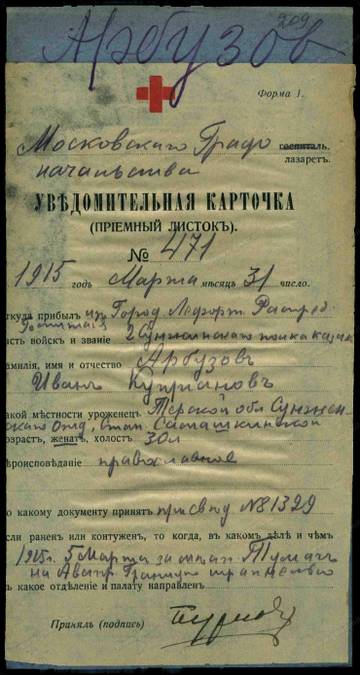 209
Арбузов
Форма 1.
Московскаго Градо госпиталь.
лазарет.
начальства
УВѢДОМИТЕЛЬНАЯ КАРТОЧКА
(ПРІЕМНЫЙ ЛИСТОКЪ).
№ 471
1915 годъ Марта мѣсяцъ 31 число.
ткуда прибылъ из Город Лефорт. Распред.
асть войскъ и званіе 2 Сунженскаго полка казак
амилія, имя и отчество Арбузовъ
Иванъ Купріановъ
акой мѣстности уроженецъ Терской обл Сунжен
скаго отд, стан Самашкинской
озрастъ, женатъ, холостъ 30 л
ѣроисповѣданіе православное
о какому документу принятъ № 81329
сли раненъ или контуженъ, то когда, въ какомъ дѣлѣ и чѣмъ
1915г. 5 Марта за Тумач
на Австр. Границу
ъ какое отдѣленіе и палату направленъ
Принялъ (подпись)